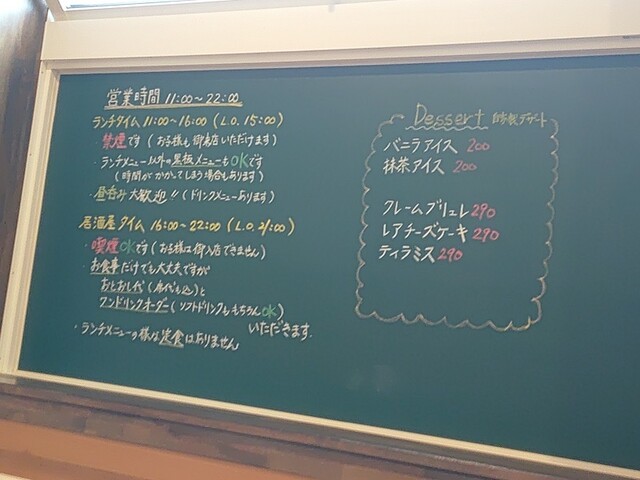 営業時間 11:00～22:00
ランチタイム 11:00～16:00 (L.O. 15:00)
・禁煙です (お子様も御来店いただけます)
・ランチメニュー以外の黒板メニューもOKです
(時間がかかってしまう場合もあります)
・昼呑み大歓迎!! (ドリンクメニューあります)
居酒屋タイム 16:00～22:00 (L.O. 21:00)
・喫煙OKです (お子様は御入店できません)
・お食事だけでも大丈夫ですが
おとおし代 (席代も込)と
ワンドリンクオーダー (ソフトドリンクももちろんOK)
いただきます.
・ランチメニューの様な定食はありません
Dessert 自家製デザート
バニラアイス 200
抹茶アイス 200
クレームブリュレ 290
レアチーズケーキ 290
ティラミス 290